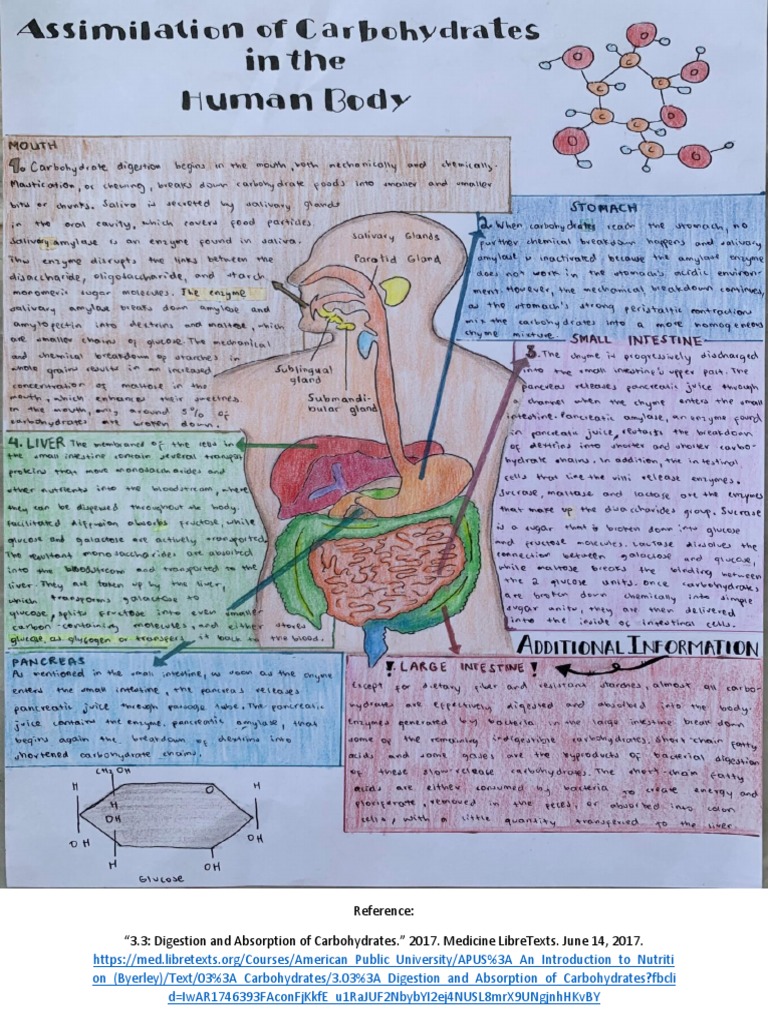 Assimilation of Carbohydrates
in the
Human Body
MOUTH
1. Carbohydrate digestion begins in the mouth, both mechanically and chemically.
Mastication, or chewing, breaks down carbohydrate foods into smaller and smaller
bits or chunks. Saliva is secreted by salivary glands
in the oral cavity, which covers food particles.
Salivary amylase is an enzyme found in saliva.
This enzyme disrupts the links between the
disaccharide, oligosaccharide, and starch
monomeric sugar molecules. The enzyme
salivary amylase breaks down amylose and
amylopectin into dextrins and maltose, which
are smaller chains of glucose. The mechanical
and chemical breakdown of starches in
whole grains results in an increased
concentration of maltose in the
mouth, which enhances their sweetness
in the mouth, only around 5% of
carbohydrates are broken down.
Salivary Glands
Parotid Gland
Sublingual
gland
Submandi-
bular gland
STOMACH
2. When carbohydrates reach the stomach, no
further chemical breakdown happens and salivary
amylase is inactivated because the amylase enzyme
does not work in the stomach's acidic environ-
ment. However, the mechanical breakdown continues,
as the stomach's strong peristaltic contraction
mix the carbohydrates into a more homogenous
chyme mixture.
SMALL INTESTINE
3. The chyme is progressively discharged
into the small intestine's upper part. The
pancreas releases pancreatic juice through
a channel when the chyme enters the small
intestine. Pancreatic amylase, an enzyme found
in pancreatic juice, restarts the breakdown
of dextrins into shorter and shorter carbo-
hydrate chains. In addition, the intestinal
cells that line the villi release enzymes.
Sucrase, maltase and lactase are the enzymes
that make up the disaccharides group. Sucrase
is a sugar that is broken down into glucose
and fructose molecules. Lactase dissolves the
connection between galactose and glucose,
while maltase breaks the binding between
the 2 glucose units. Once carbohydrates
are broken down chemically into simple
sugar units, they are then delivered
into the inside of intestinal cells.
4. LIVER The membranes of the cells in
the small intestine contain several transport
proteins that move monosaccharides and
other nutrients into the bloodstream, where
they can be dispersed throughout the body.
Facilitated diffusion absorbs fructose, while
glucose and galactose are actively transported.
The resultant monosaccharides are absorbed
into the bloodstream and transported to the
liver. They are taken up by the liver,
which transforms galactose to
glucose, splits fructose into even smaller
carbon-containing molecules, and either stores
glucose as glycogen or transfers it back to the blood.
PANCREAS
As mentioned in the small intestine, as soon as the chyme
enters the small intestine, the pancreas releases
pancreatic juice through passage tube. The pancreatic
juice contains the enzyme, pancreatic amylase, that
begins again the breakdown of dextrins into
shortened carbohydrate chains.
ADDITIONAL INFORMATION
! LARGE INTESTINE !
Except for dietary fiber and resistant starches, almost all carbo-
hydrates are effectively digested and absorbed into the body.
Enzymes generated by bacteria in the large intestine break down
some of the remaining indigestible carbohydrates. Short-chain fatty
acids and some gases are the byproducts of bacterial digestion
of these slow-release carbohydrates. The short-chain fatty
acids are either consumed by bacteria to create energy and
proliferate, removed in the feces, or absorbed into colon
cells, with a little quantity transferred to the liver.
C
C
C
C
C
O
O
O
O
O
O
CH2OH
H
O
H
H
OH
OH
OH
H
OH
Glucose
Reference:
“3.3: Digestion and Absorption of Carbohydrates.” 2017. Medicine LibreTexts. June 14, 2017.
https://med.libretexts.org/Courses/American_Public_University/APUS%3A_An_Introduction_to_Nutriti
on_(Byerley)/Text/03%3A_Carbohydrates/3.03%3A_Digestion_and_Absorption_of_Carbohydrates?fbcli
d=IwAR1746393FAconFjKkfE_u1RaJUF2NbybYI2ej4NUSL8mrX9UNgjnhHKvBY